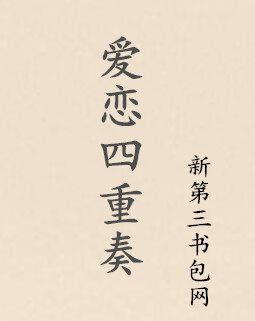 爱恋四重奏
新第三书包网